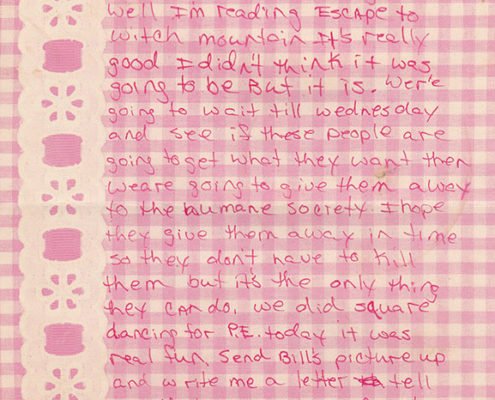 well I'm reading Escape to
witch mountain It's really
good I didn't think it was
going to be But it is. Wer'e
going to wait till wednesday
and see if these people are
going to get what they want then
weare going to give them away
to the humane society. I hope
they give them away in time
so they don't have to kill
them but it's the only thing
they can do. we did square
dancing for P.E. today it was
real fun. Send Bill's picture up
and write me a letter tell